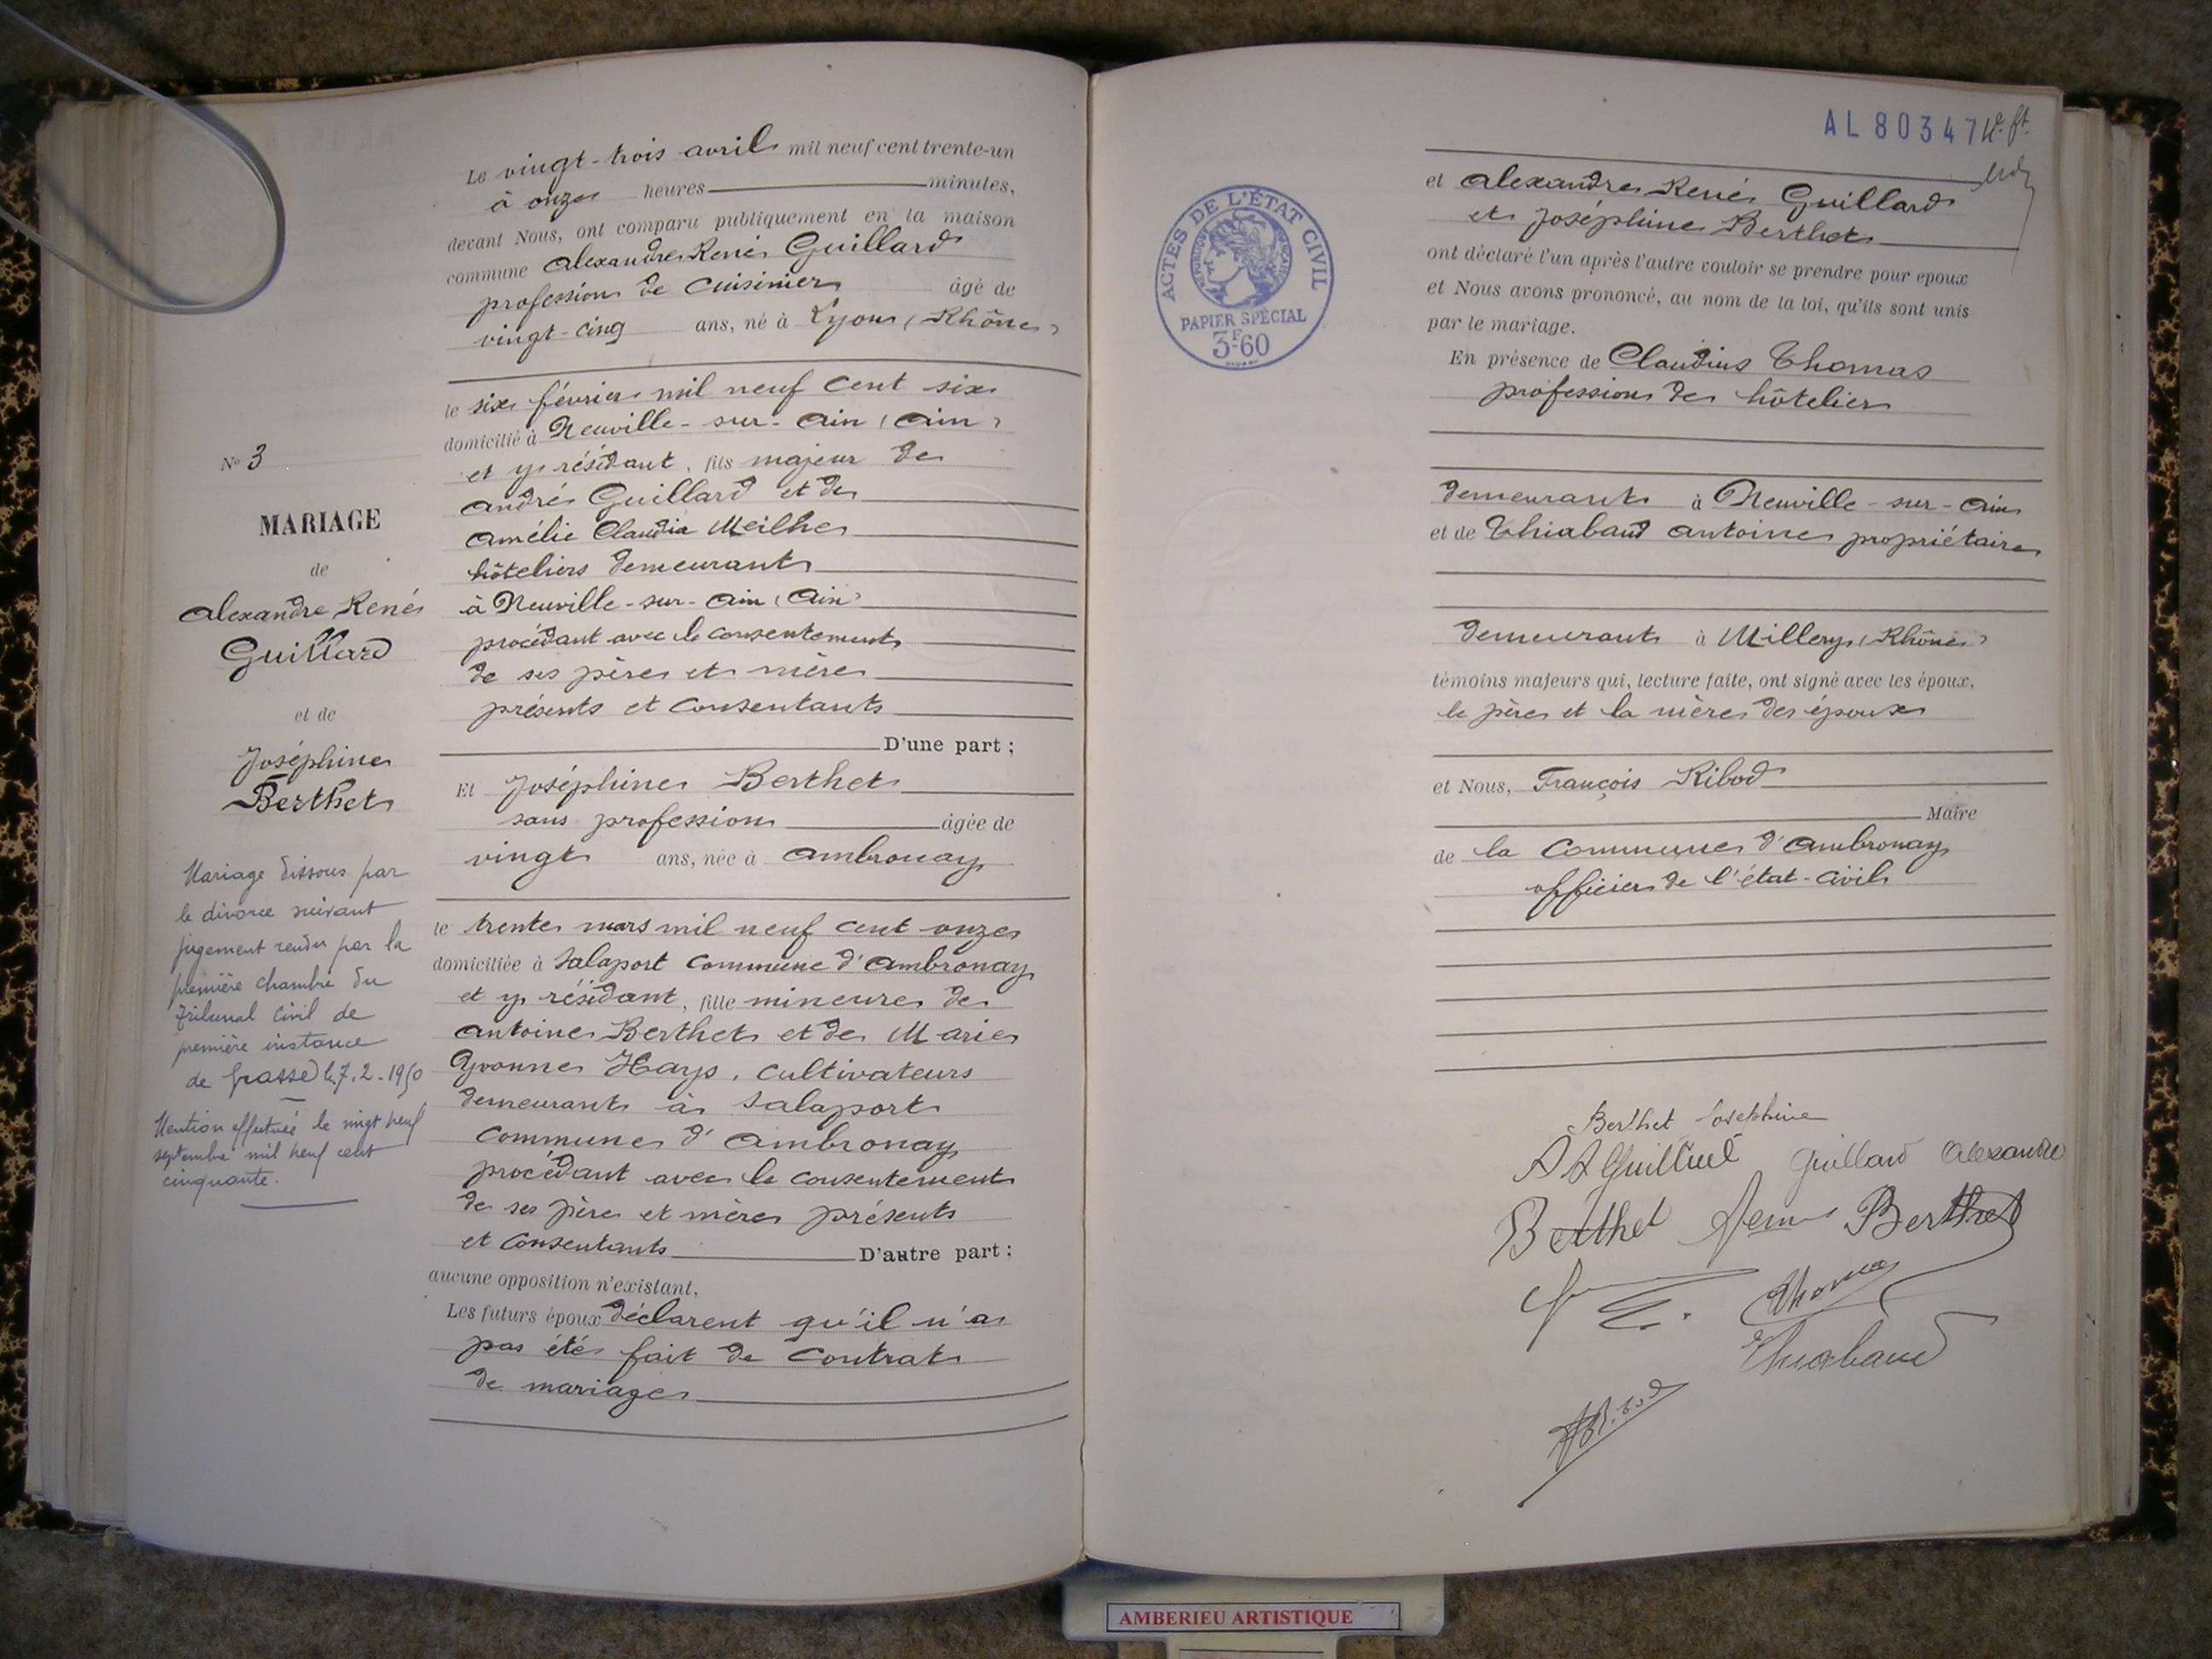 Le vingt-trois avril mil neuf cent trente-un
à onze heures minutes,
devant Nous, ont comparu publiquement en la maison
commune Alexandre René Guillard
profession de cuisinier âgé de
vingt-cinq ans, né à Lyon (Rhône)
le six février mil neuf cent six
domicilié à Neuville-sur-Ain (Ain)
et y résidant, fils majeur de
André Guillard et de
Amélie Claudia Meilhe
hôteliers demeurant
à Neuville-sur-Ain (Ain)
procédant avec le consentement
de ses père et mère
présents et consentants
D'une part ;
Et Joséphine Berthet
sans profession âgée de
vingt ans, née à Ambronay
le trente mars mil neuf cent onze
domiciliée à Salaport commune d'Ambronay
et y résidant, fille mineure de
Antoine Berthet et de Marie
Yvonne Hays, cultivateurs
demeurant à Salaport
commune d'Ambronay
procédant avec le consentement
de ses père et mère présents
et consentants D'autre part ;
aucune opposition n'existant,
Les futurs époux déclarent qu'il n'a
pas été fait de contrat
de mariage
No 3
MARIAGE
de
Alexandre René
Guillard
et de
Joséphine
Berthet
Mariage dissous par
le divorce suivant
jugement rendu par la
première chambre du
Tribunal Civil de
première instance
de Grasse le 7.2.1950
Mention effectuée le vingt neuf
septembre mil neuf cent
cinquante.
AL 80347
ACTES DE L'ÉTAT CIVIL
PAPIER SPÉCIAL
3F60
et Alexandre René Guillard
et Joséphine Berthet
ont déclaré l'un après l'autre vouloir se prendre pour epoux
et Nous avons prononcé, au nom de la loi, qu'ils sont unis
par le mariage.
En présence de Claudius Thomas
profession de hôtelier
demeurant à Neuville-sur-Ain
et de Thiabaud Antoine propriétaire
demeurant à Millery (Rhône)
témoins majeurs qui, lecture faite, ont signé avec les époux,
le père et la mère des époux
et Nous, François Ribod
Maire
de la commune d'Ambronay
officier de l'état-civil
Berthet Joséphine
Guillard Alexandre
Berthet Berthet
Thomas
Thiabaud
AMBERIEU ARTISTIQUE